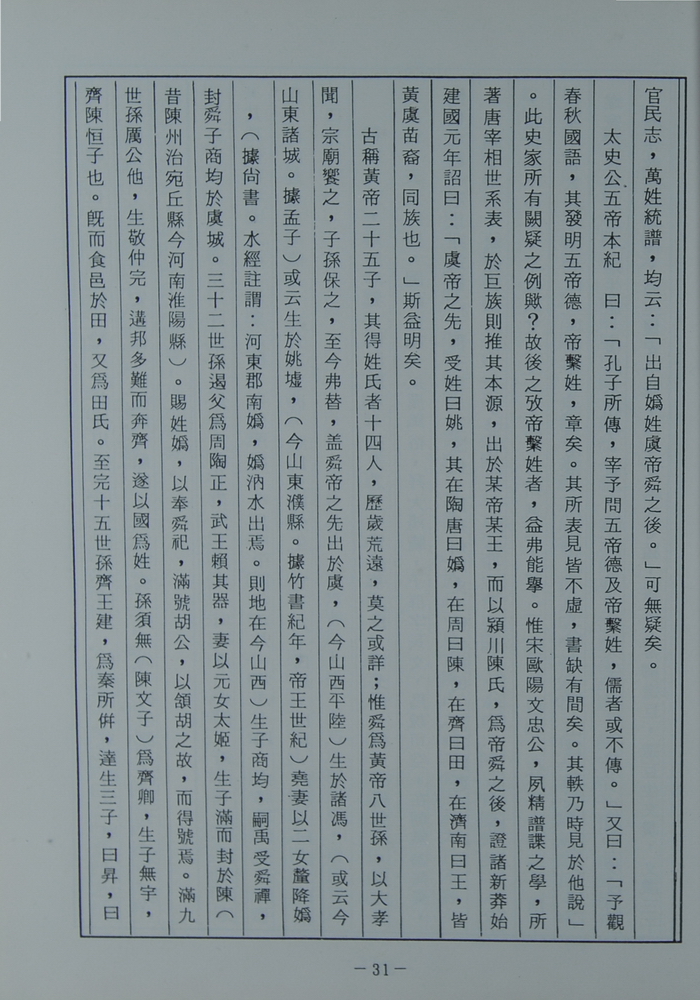 官民志，萬姓統譜，均云：「出自媯姓虞帝舜之後。」可無疑矣。
太史公五帝本紀　曰：「孔子所傳，宰予問五帝德及帝繫姓，儒者或不傳。」又曰：「予觀
春秋國語，其發明五帝德，帝繫姓，章矣。其所表見皆不虛，書缺有間矣。其軼乃時見於他說」
。此史家所有闕疑之例歟？故後之攷帝繫姓者，益弗能擧。惟宋歐陽文忠公，夙精譜諜之學，所
著唐宰相世系表，於巨族則推其本源，出於某帝某王，而以潁川陳氏，爲帝舜之後，證諸新莽始
建國元年詔曰：「虞帝之先，受姓曰姚，其在陶唐曰媯，在周曰陳，在齊曰田，在濟南曰王，皆
黃虞苗裔，同族也。」斯益明矣。
古稱黃帝二十五子，其得姓氏者十四人，歷歲荒遠，莫之或詳；惟舜爲黃帝八世孫，以大孝
聞，宗廟饗之，子孫保之，至今弗替，盖舜帝之先出於虞，（今山西平陸）生於諸馮，（或云今
山東諸城。據孟子）或云生於姚墟，（今山東濮縣。據竹書紀年，帝王世紀）堯妻以二女釐降媯
，（據尚書。水經註謂：河東郡南媯，媯汭水出焉。則地在今山西）生子商均，嗣禹受舜禪，
封舜子商均於虞城。三十二世孫遏父爲周陶正，武王賴其器，妻以元女太姬，生子滿而封於陳（
昔陳州治宛丘縣今河南淮陽縣）。賜姓媯，以奉舜祀，滿號胡公，以頷胡之故，而得號焉。滿九
世孫厲公他，生敬仲完，遘邦多難而奔齊，遂以國爲姓。孫須無（陳文子）爲齊卿，生子無宇，
齊陳恒子也。旣而食邑於田，又爲田氏。至完十五世孫齊王建，爲秦所倂，達生三子，曰昇，曰
－31－